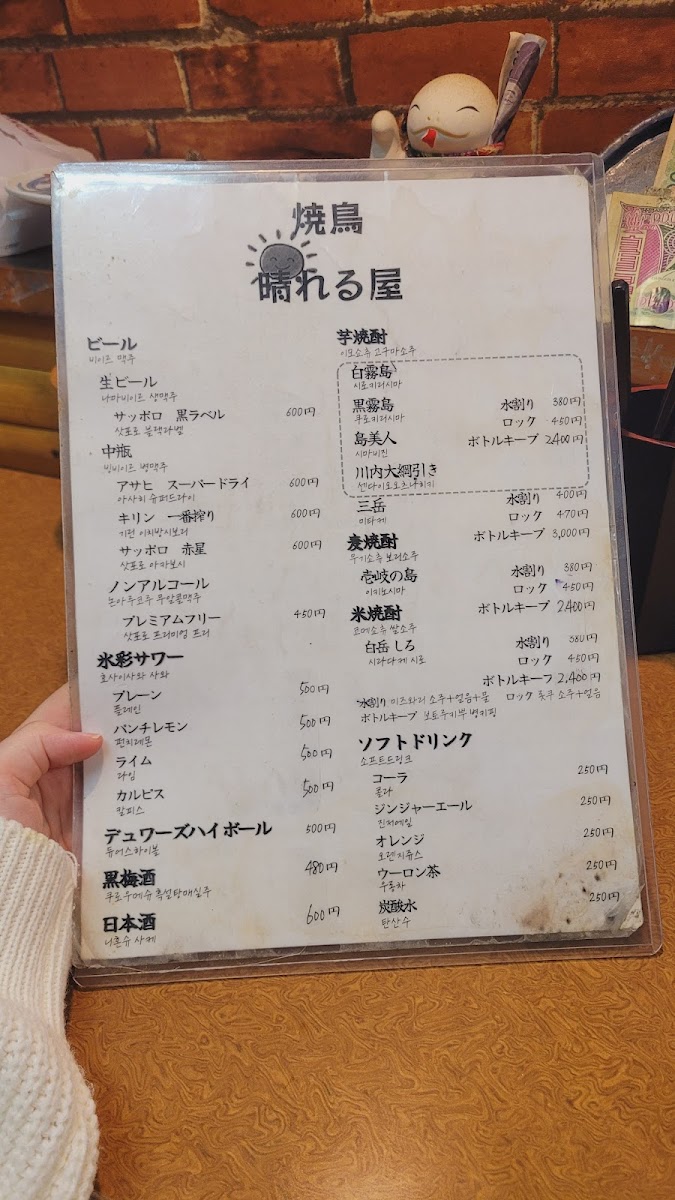 焼鳥
晴れる屋
ビール
비이프 맥주
生ビール
나마비이프 생맥주
サッポロ 黒ラベル 600円
삿포로 블랙라벨
中瓶
빙비이프 병맥주
アサヒ スーパードライ 600円
아사히 슈퍼드라이
キリン 一番搾り 600円
기린 이치방시보리
サッポロ 赤星 600円
삿포로 아카보시
ノンアルコール
논아루코루 무알콜맥주
プレミアムフリー 450円
삿포로 프리미엄 프리
氷彩サワー
효사이사와 사와
プレーン 500円
플레인
パンチレモン 500円
펀치레몬
ライム 500円
라임
カルピス 500円
칼피스
デュワーズハイボール 500円
듀어스하이볼
黒梅酒 480円
쿠로우메슈 흑설탕매실주
日本酒 600円
니혼슈 사케
芋焼酎
이모쇼츄 고구마소주
白霧島
시로키리시마
黒霧島 水割り 380円
쿠로키리시마 ロック 450円
島美人 ボトルキープ 2,400円
시마비진
川内大綱引き
센다이오오츠나히키
三岳 水割り 400円
미타케 ロック 470円
ボトルキープ 3,000円
麦焼酎
무기쇼츄 보리소주
壱岐の島 水割り 380円
이키노시마 ロック 450円
ボトルキープ 2,400円
米焼酎
코메쇼츄 쌀소주
白岳 しろ 水割り 380円
시라다케 시로 ロック 450円
ボトルキープ 2,400円
水割り 미즈와리 소주+얼음+물 ロック 롯쿠 소주+얼음
ボトルキープ 보토루키푸 병키핑
ソフトドリンク
소프트드링크
コーラ 250円
콜라
ジンジャーエール 250円
진저에일
オレンジ 250円
오렌지쥬스
ウーロン茶 250円
우롱차
炭酸水 250円
탄산수